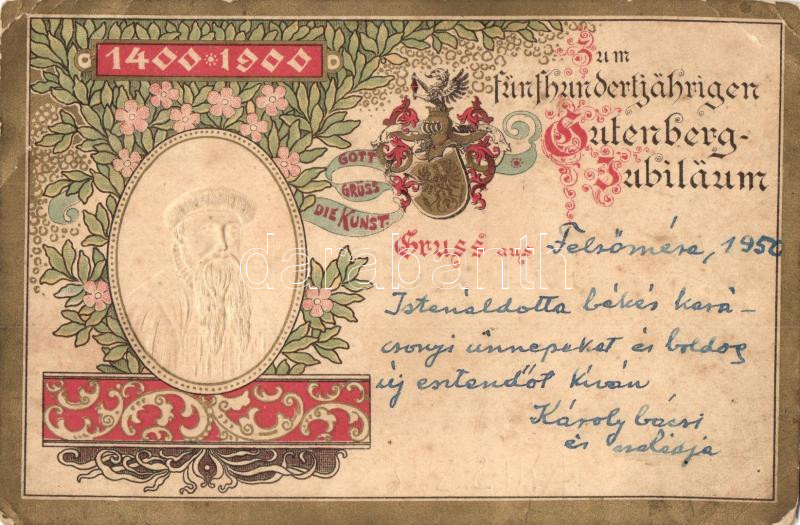 1400 * 1900
Zum
fünfhundertjährigen
Gutenberg-
Jubiläum
GOTT
GRÜSS
DIE KUNST.
Gruss aus Felsőméra, 1950
Istenáldotta békés kará-
csonyi ünnepeket és boldog
új esztendőt kíván
Károly bácsi
és családja
darabanth